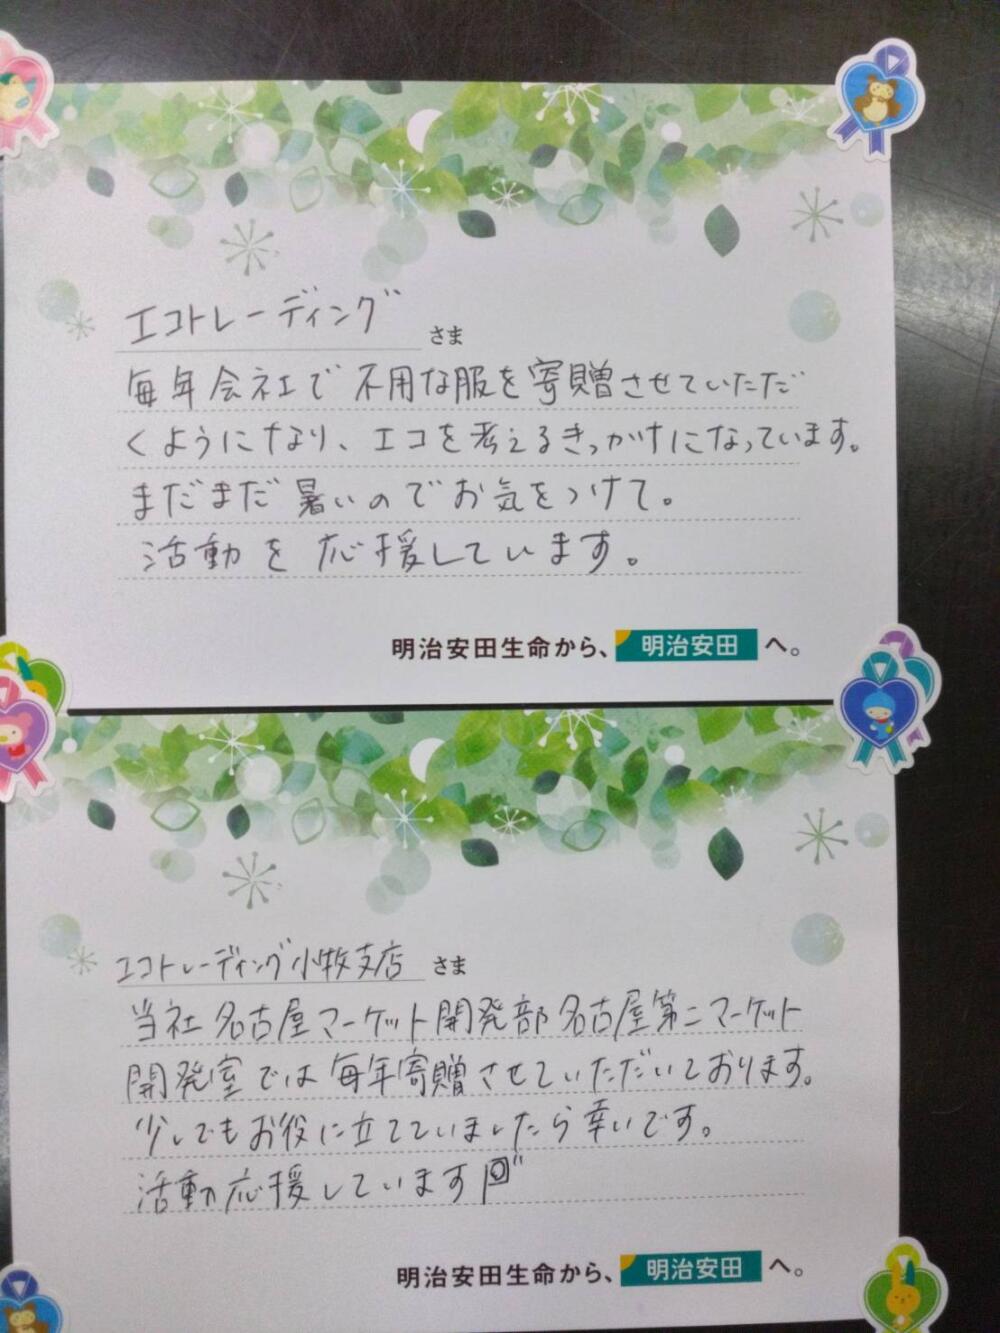 エコトレーディング さま
毎年会社で不用な服を寄贈させていただだ
くようになり、エコを考えるきっかけになっています。
まだまだ暑いのでお気をつけて。
活動を応援しています。
明治安田生命から、明治安田 へ。
エコトレーディング小牧支店 さま
当社名古屋マーケット開発部名古屋第二マーケット
開発室では毎年寄贈させていただいております。
少しでもお役に立てていましたら幸いです。
活動応援しています
明治安田生命から、明治安田 へ。